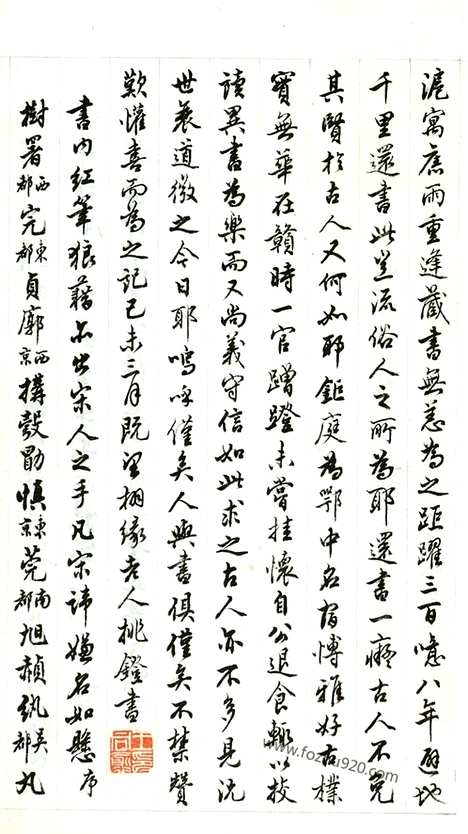 滬寓舊雨重逢藏書無恙為之距躍三百憶八年避地
千里還書此豈流俗人之所為耶還書一癡古人不免
其賢於古人又何如耶鉅庭為鄂中名宿博雅好古樸
實無華在贛時一官蹭蹬未嘗挂懷自公退食輒以校
讀異書為樂而又尚義守信如此求之古人亦不多見況
世衰道微之今日耶嗚呼僅矣人與書俱僅矣不禁贊
歎懽喜而為之記己未三月既望栩緣老人挑鐙書
書內紅筆狼藉亦出宋人之手凡宋諱嫌名如懸序
樹署西都完東都貞廓西京搆彀勖慎東京莞南都旭赬紈吳都丸
www.fozhu920.com